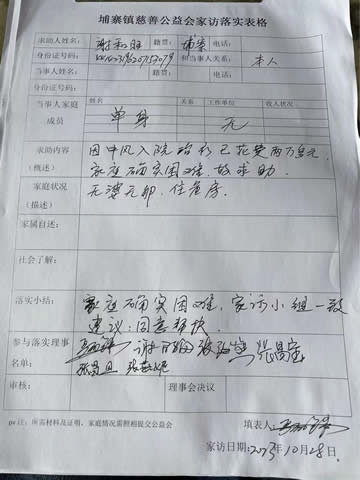 埔寨镇慈善公益会家访落实表格
求助人姓名: 谢和旺 籍贯: 埔寨 电话:
身份证号码: 和当事人关系: 本人
当事人姓名: 籍贯: 电话:
身份证号码:
当事人家庭成员 姓名 关系 工作单位 收入状况
单身 无
求助内容(概述) 因中风入院治疗已花费两万多元,
家庭确实困难,故求助.
家庭状况(描述) 无婆无卯,住危房.
家属自述:
社会了解:
落实小结: 家庭确实困难,家访小组一致
建议:同意帮扶.
参与落实理事名单:
审核: 理事会决议
ps注:所需材料及证明、家庭情况需照相提交公益会
填表人:
家访日期:2023年10月28日.